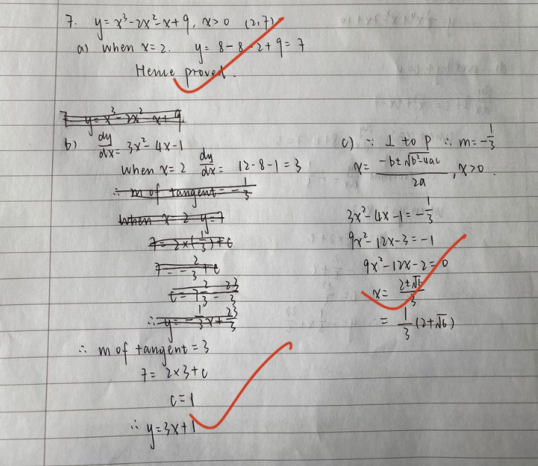 7. y = x³-2x²-x+9, x>0 (2,7)
a) when x=2. y = 8-8-2+9=7
Hence proved.
7 y=x³-2x²-x+9
b) dy/dx = 3x²-4x-1
when x=2 dy/dx = 12-8-1=3
∴ m of tangent = -1/3
when x=2 y=7
7=2×(1/3)+c
7=-2/3+c
∴ y=-1/3x+23/3
∴ m of tangent = 3
7=2×3+c
c=1
∴ y=3x+1
c) ∵ ⊥ to P ∴ m=-1/3
x= (-b±√b²-4ac)/2a, x>0.
3x²-4x-1=-1/3
9x²-12x-3=-1
9x²-12x-2=0
x= (2±√6)/3
= 1/3(2+√6)